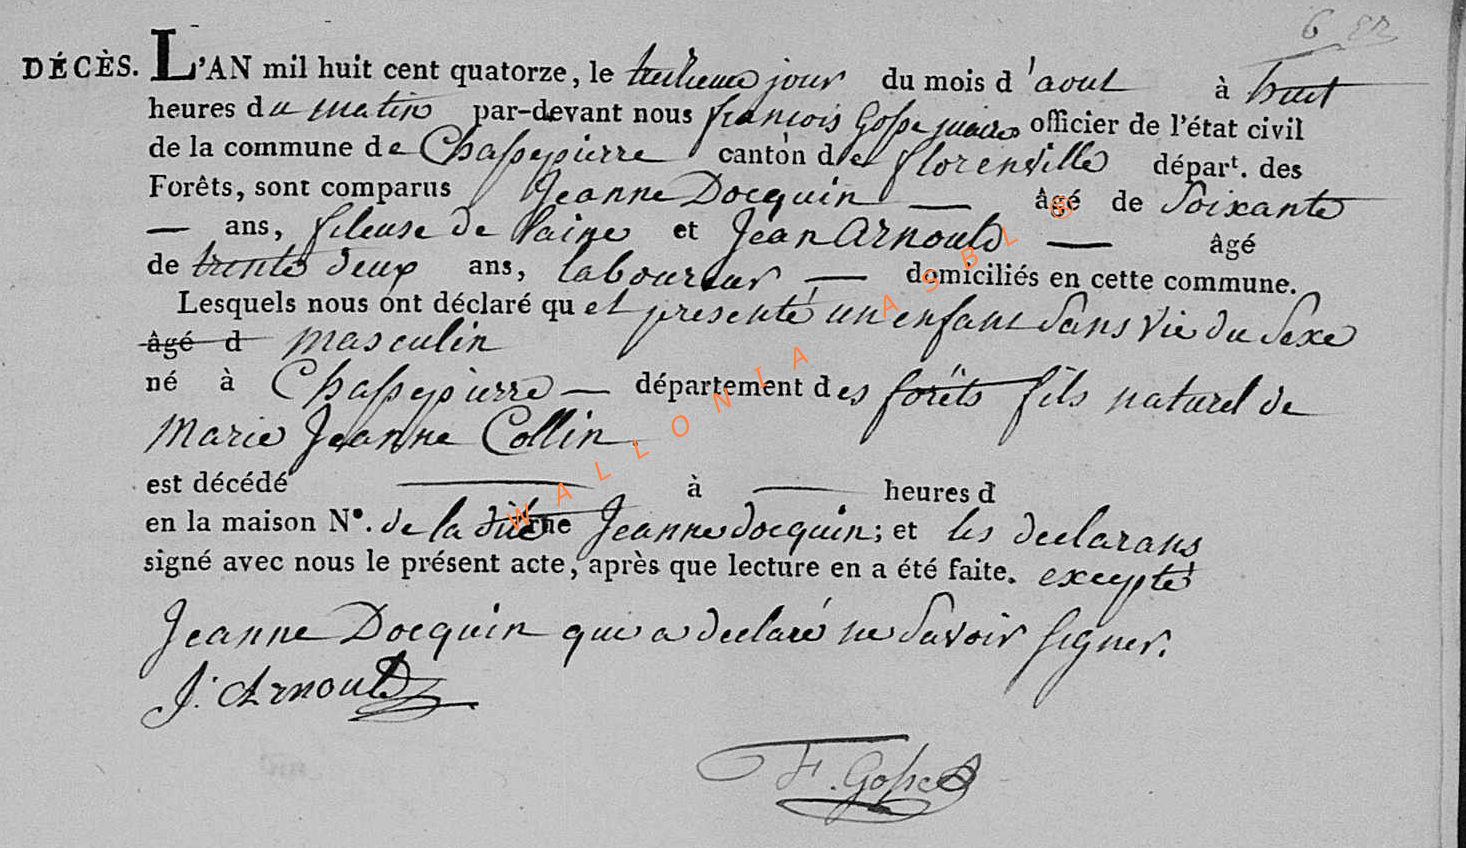 DÉCÈS. L'AN mil huit cent quatorze, le jour du mois d'aout à huit
heures du matin par-devant nous francois Gosse maire officier de l'état civil
de la commune de Chassepierre canton de florenville départ. des
Forêts, sont comparus Jeanne Docquin — âgé de Soixante
— ans, fileuse de laine et Jean Arnould — âgé
de trente deux ans, laboureur — domiciliés en cette commune.
Lesquels nous ont déclaré qu et presenté un enfant Sans vie du Sexe
âgé d masculin
né à Chassepierre — département des forêts fils naturel de
Marie Jeanne Collin
est décédé — à — heures d
en la maison N°. de la dite Jeanne docquin; et les declarans
signé avec nous le présent acte, après que lecture en a été faite. excepté
Jeanne Docquin qui a declaré ne Savoir signer.
J. Arnould
F. Gosse
WALLONIA ASBL ©